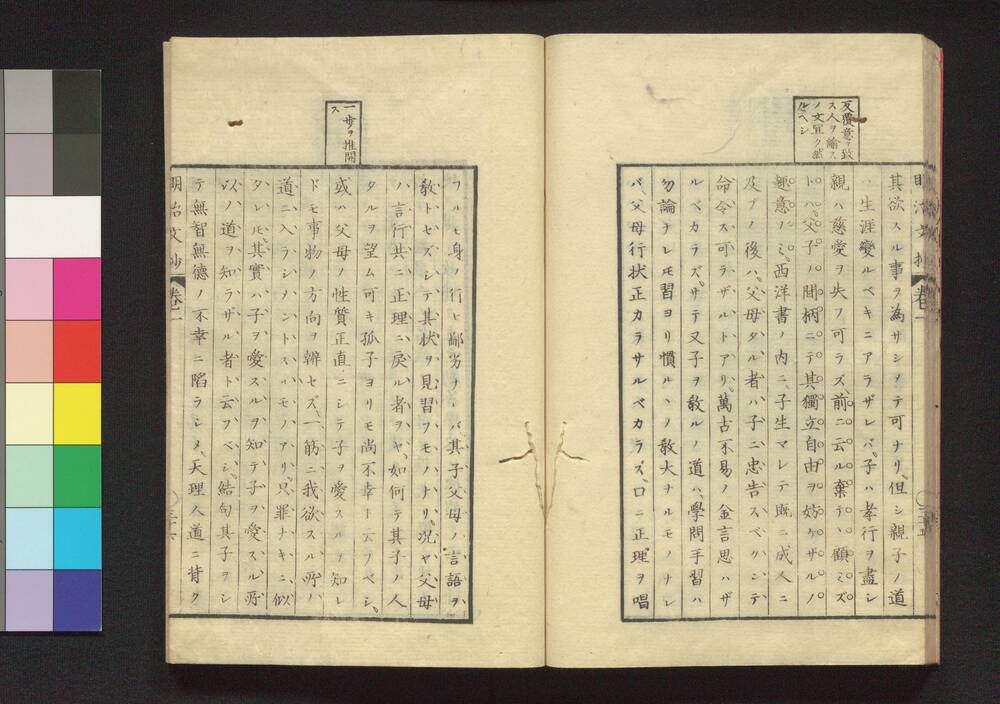 反覆意ヲ致
ス人ヲ諭ス
ノ文冝ク然
ルヘシ
明治文抄 卷二
其欲スル事ヲ為サシメテ可ナリ但シ親子ノ道
ハ生涯變ルベキニアラザレバ子ハ孝行ヲ盡シ
親ハ慈愛ヲ失フ可ラズ前ニ云ル棄テヽ顧ミズ
トハ父子ノ間柄ニテ其獨立自由ヲ妨ケザルノ
趣意ノミ西洋書ノ内ニ子生マレテ既ニ成人ニ
及ブノ後ハ父母タル者ハ子ニ忠告スベクシテ
命令ス可ラザルトアリ萬古不易ノ金言思ハザ
ルベカラズサテ又子ヲ教ルノ道ハ學問手習ハ
勿論ナレ𪜈習ヨリ慣ルヽノ教大ナルモノナレ
バ父母行状正カラサルベカラズ口ニ正理ヲ唱
一歩ヲ推開
ス
フルモ身ノ行ヒ鄙劣ナレバ其子父母ノ言語ヲ
教トセズシテ其状ヲ見習フモノナリ況ヤ父母
ハ言行共ニ正理ニ戻ル者ヲヤ如何テ其子ノ人
タルヲ望ム可キ孤子ヨリモ尚不幸ト云フベシ
或ハ父母ノ性質正直ニシテ子ヲ愛スルヲ知レ
ドモ事物ノ方向ヲ辨セズ一筋ニ我欲スル所ノ
道ニ入ラシメントスルモノアリ只罪ナキニ似
タレ𪜈其實ハ子ヲ愛スルヲ知テ子ヲ愛スル所
以ノ道ヲ知ラザル者ト云フベシ結句其子ヲシ
テ無智無德ノ不幸ニ陷ラシメ天理人道ニ背ク
明治文抄 卷二